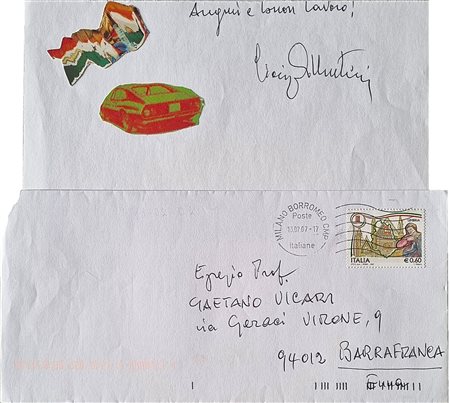 Auguri e buon lavoro!
MILANO BORROMEO CMP
Poste
italiane
UMBRIA
ITALIA
€ 0,60
Egregio Prof.
GAETANO VICARI
via Geraci VIRONE, 9
94012 BARRAFRANCA
Enna